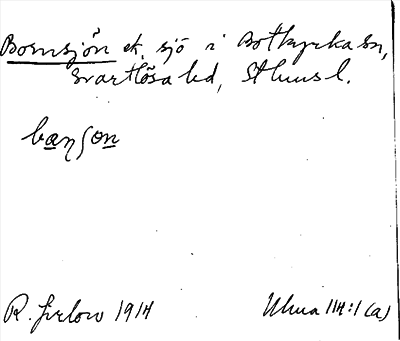 Bornsjön ek. sjö i Botkyrka sn,
Svartlösa hd, Sthlms l.
bəŋʃon
R. Jirlow 1914
Ulma 114:1 (a)